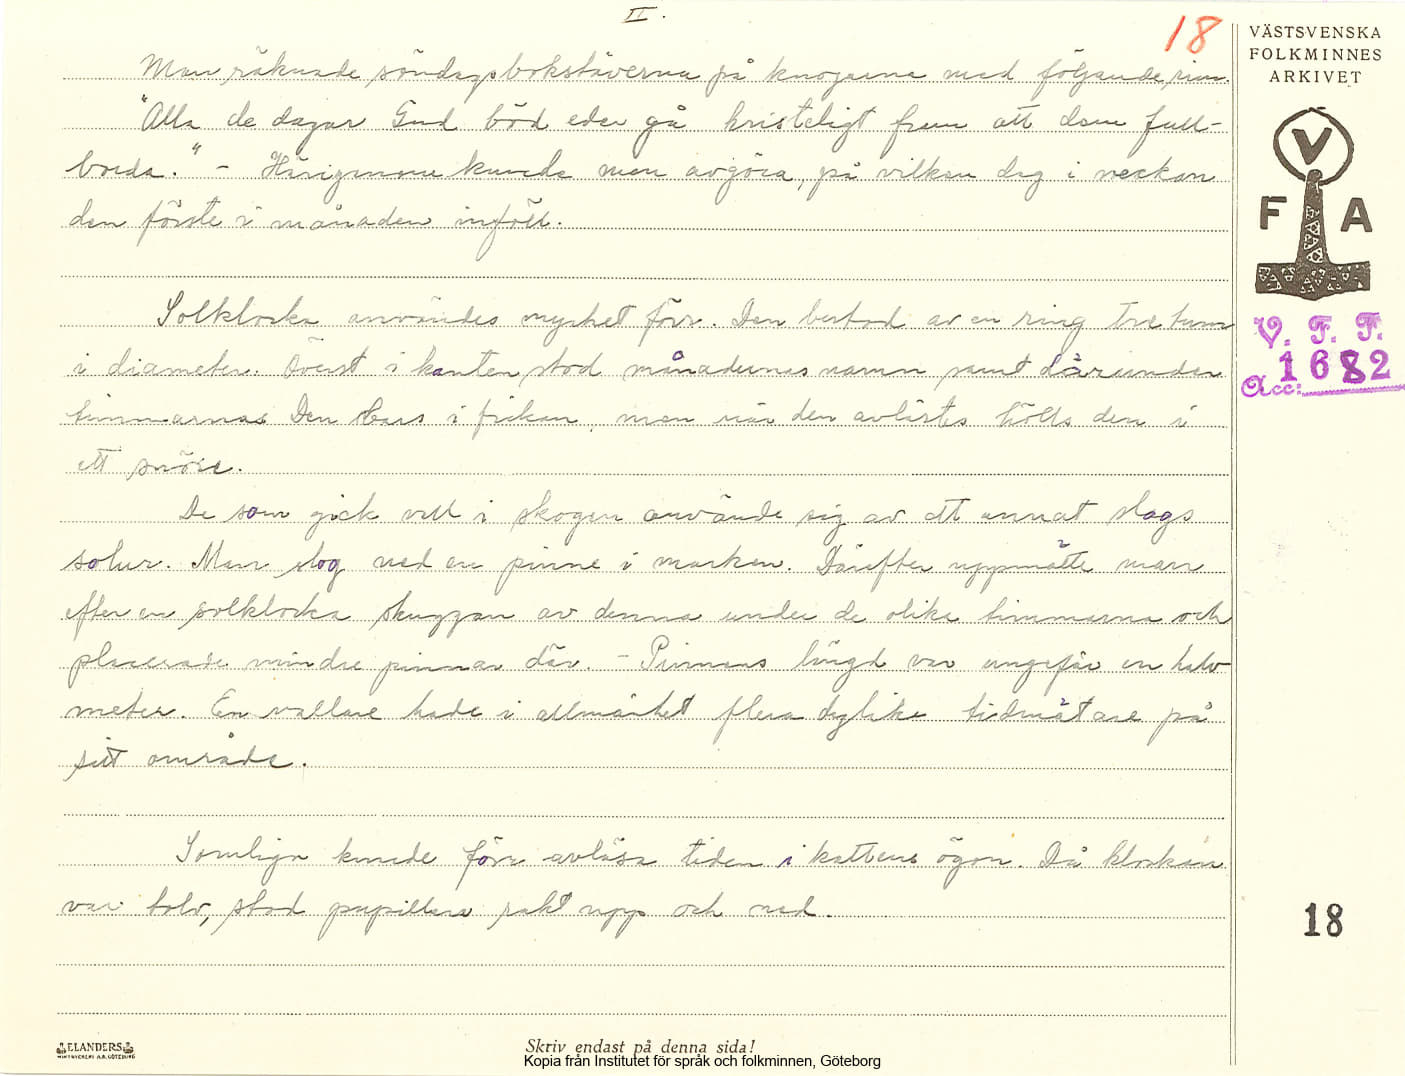 II.
18
Man räknade söndagsbokstäverna på knogarna med följande rim.
"Alla de dagar Gud böd eder gå kristeligt fram att dem full-
borda." - Härigenom kunde man avgöra, på vilken dag i veckan
den förste i månaden inföll.
Solklocka användes mycket förr. Den bestod av en ring tre tum
i diameter. Överst i kanten stod månadernas namn samt därunder
timmarnas Den bars i fickan, men när den avlästes hölls den i
ett snöre.
De som gick vall i skogen använde sig av ett annat slags
solur. Man slog ned en pinne i marken. Därefter uppmätte man
efter en solklocka skuggan av denna under de olika timmarna och
placerade mindre pinnar där. - Pinnens längd var ungefär en halv
meter. En vallare hade i allmänhet flera dylika tidmätare på
sitt område.
Somliga kunde förr avläsa tiden i kattens ögon. Då klockan
var tolv, stod pupillerna rakt upp och ned.
VÄSTSVENSKA
FOLKMINNES
ARKIVET
V
F A
V. F. F.
Acc: 1682
18
ELANDERS
Skriv endast på denna sida!
Kopia från Institutet för språk och folkminnen, Göteborg